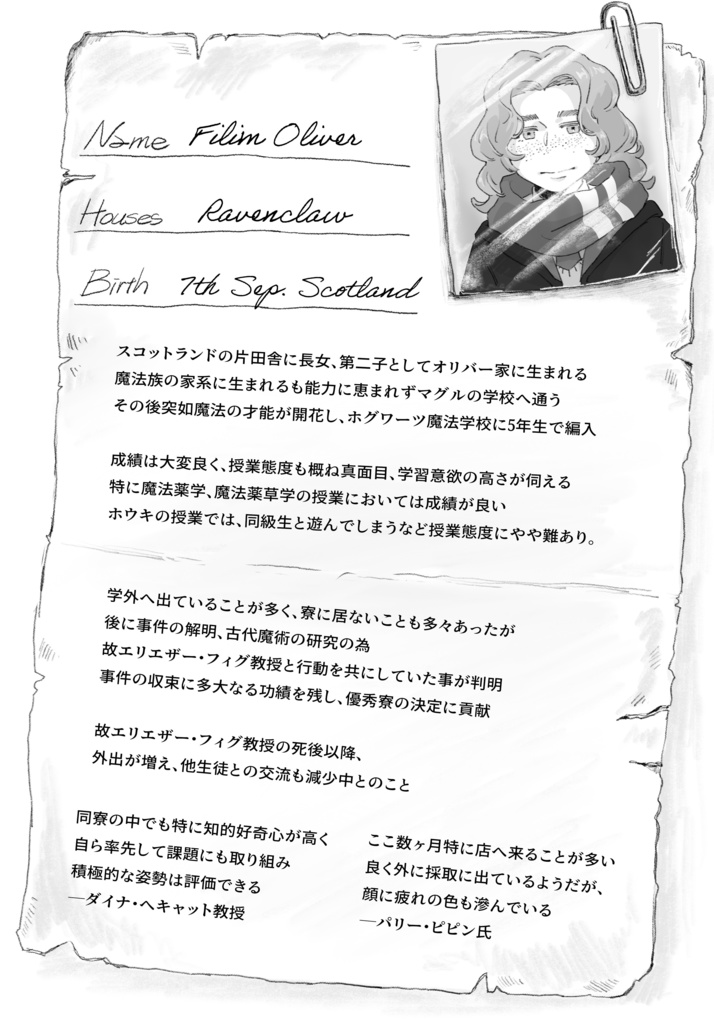 Name Filim Oliver
Houses Ravenclaw
Birth 7th Sep. Scotland
スコットランドの片田舎に長女、第二子としてオリバー家に生まれる
魔法族の家系に生まれるも能力に恵まれずマグルの学校へ通う
その後突如魔法の才能が開花し、ホグワーツ魔法学校に5年生で編入
成績は大変良く、授業態度も概ね真面目、学習意欲の高さが伺える
特に魔法薬学、魔法薬草学の授業においては成績が良い
ホウキの授業では、同級生と遊んでしまうなど授業態度にやや難あり。
学外へ出ていることが多く、寮に居ないことも多々あったが
後に事件の解明、古代魔術の研究の為
故エリエザー・フィグ教授と行動を共にしていた事が判明
事件の収束に多大なる功績を残し、優秀寮の決定に貢献
故エリエザー・フィグ教授の死後以降、
外出が増え、他生徒との交流も減少中とのこと
同寮の中でも特に知的好奇心が高く
自ら率先して課題にも取り組み
積極的な姿勢は評価できる
―ダイナ・ヘキャット教授
ここ数ヶ月特に店へ来ることが多い
良く外に採取に出ているようだが、
顔に疲れの色も滲んでいる
―パリー・ピピン氏